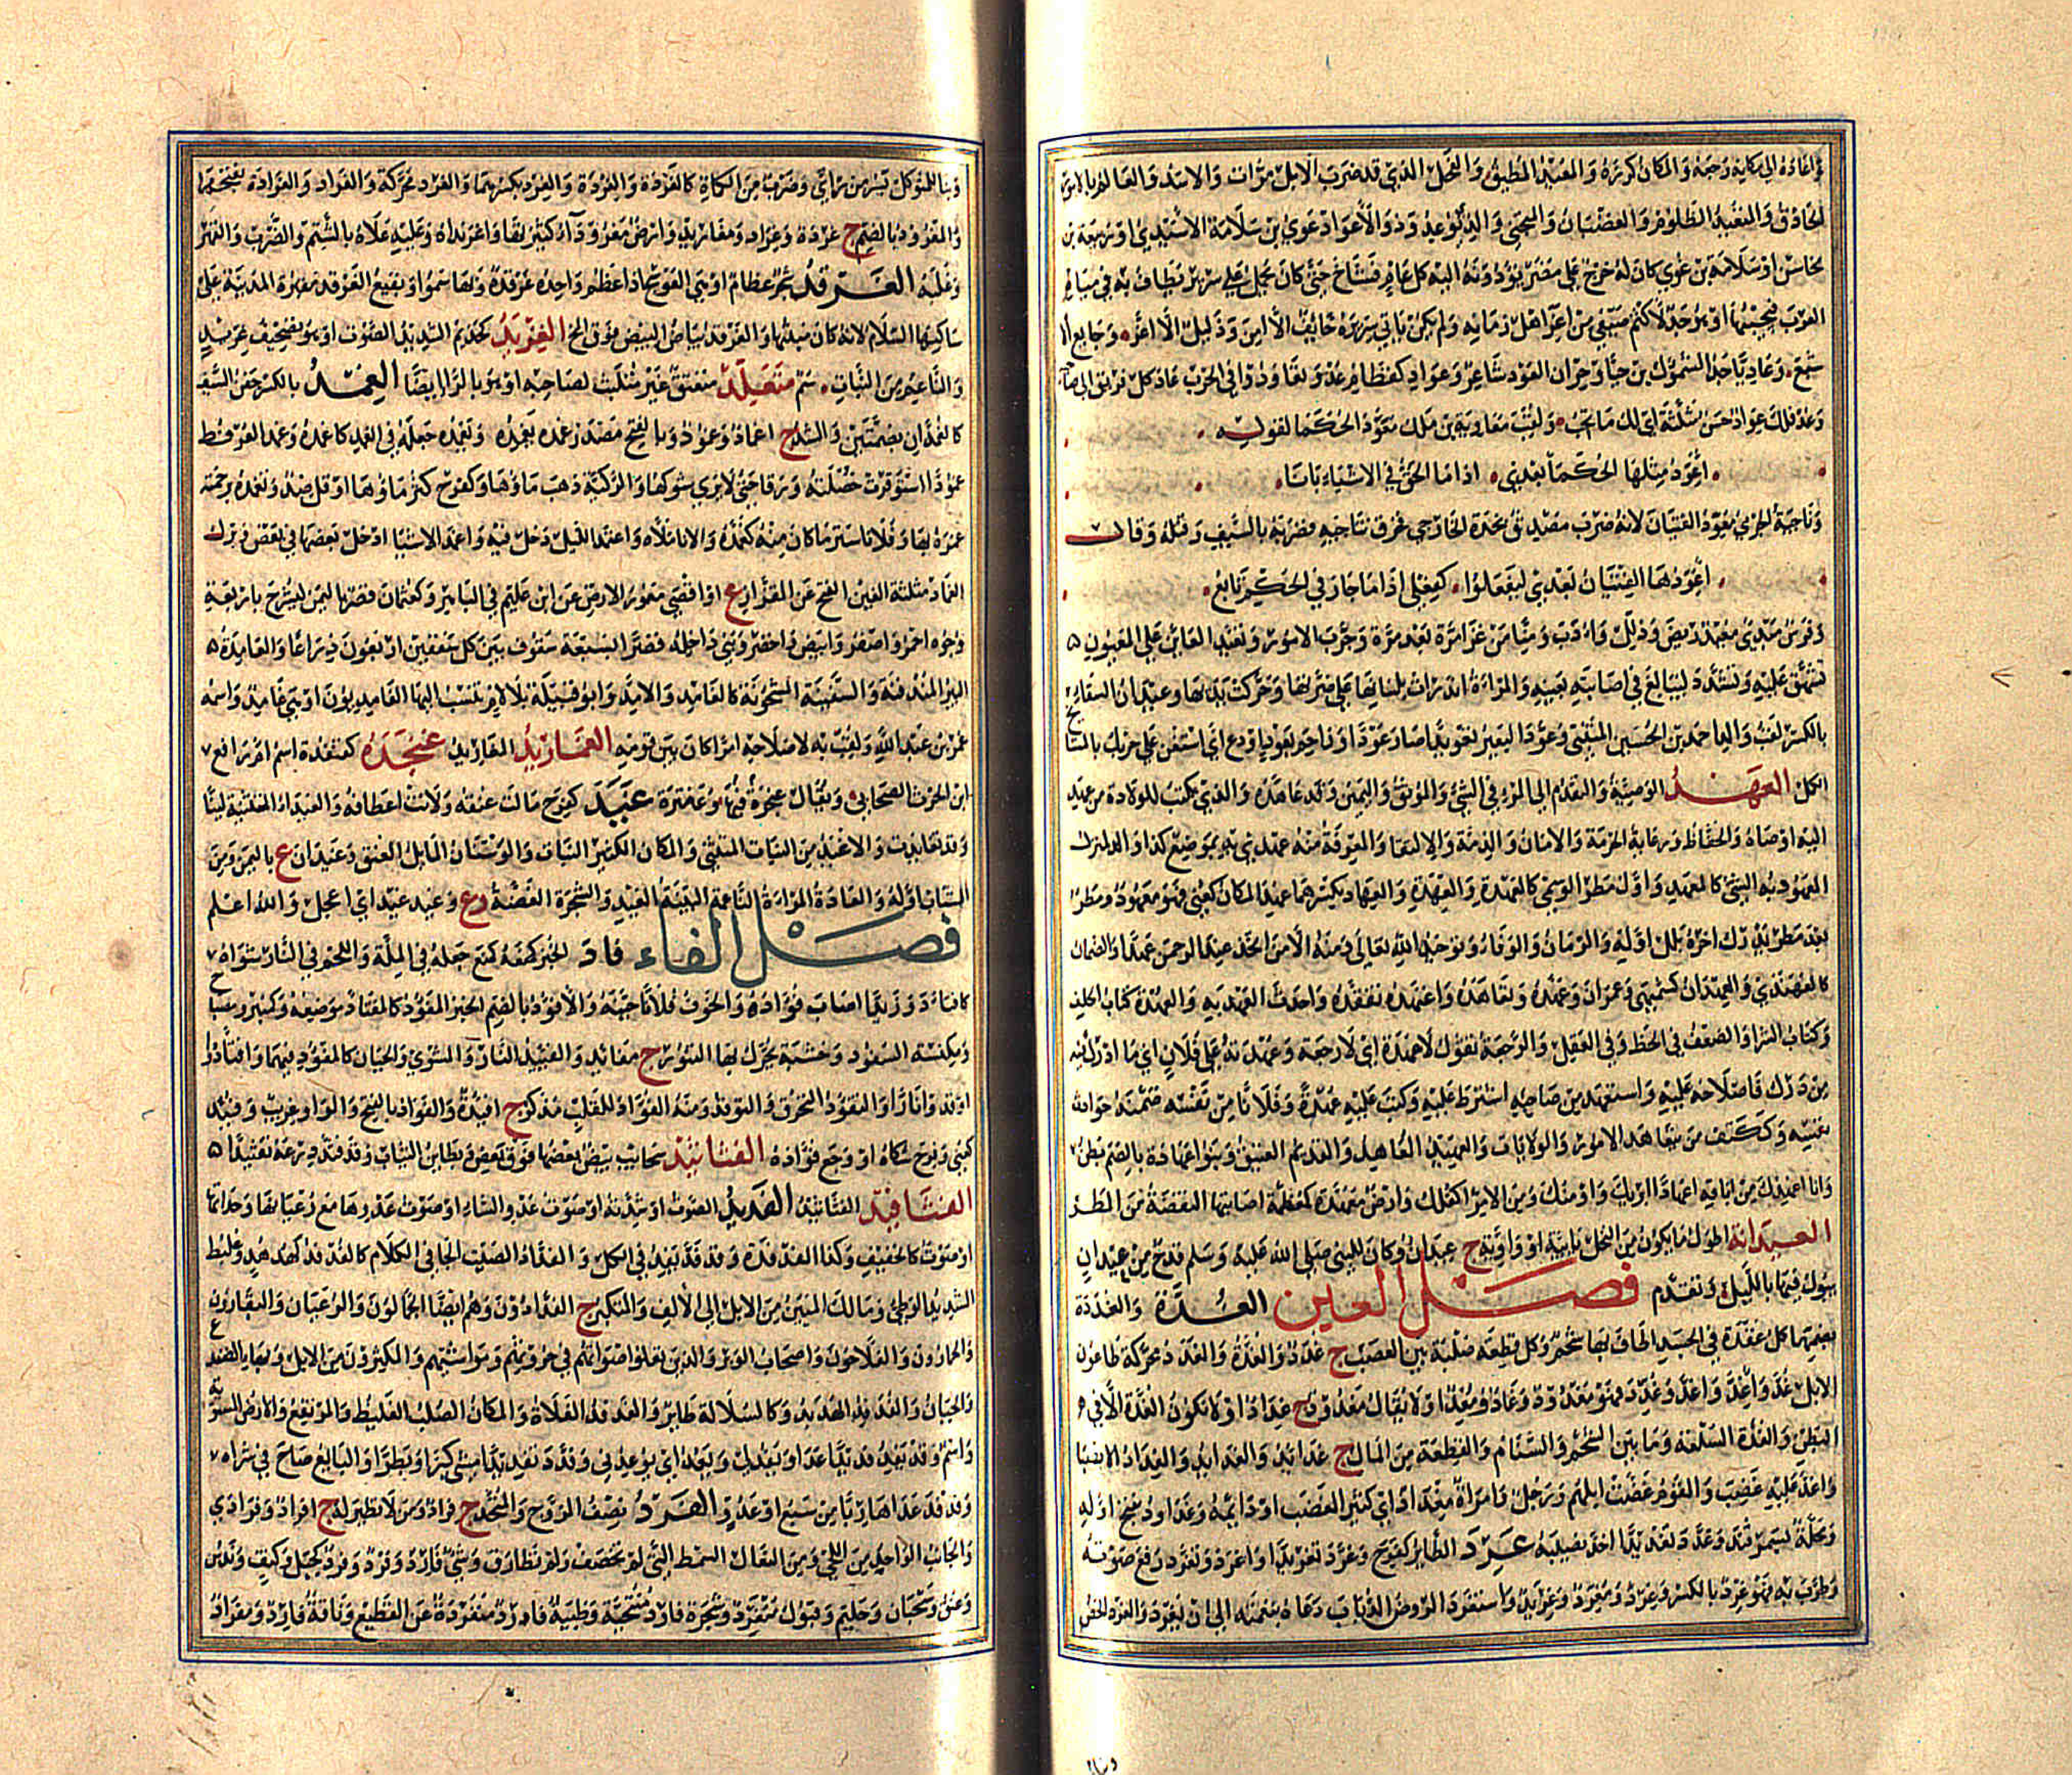 واعاده الى مكانه رجعه والكلام كرره والمعيد المطيق والفحل الذي قد ضرب الابل مرات والاسد والعالم بالامور
الحاذق والمتعيد الظلوم والغضبان والمتجني والذي يوعد وذو الاعواد غوي بن سلامة الاسيدي او ربيعة بن
مخاشن او سلامة بن غوي كان له خرج على مضر يؤدونه اليه كل عام فشاخ حتى كان يحمل على سرير يطاف به في مياه
العرب فيجبيها او هو جد لاكثم بن صيفي من اعز اهل زمانه ولم يكن ياتي سريره خائف الا امن وذليل الا اعز وجائع الا
شبع وعادياء جد السموءل بن حيا وجران العود شاعر وعواد كقطام عد وتعاودوا في الحرب عاد كل فريق الى صاحبه
وعد فلك عواد حسن مثلثة اي لك ما تحب ولقب معاوية بن ملك معود الحكما لقوله
اعود مثلها الحكما بعدي اذا ما الحق في الاشياع نابا
وناجية الجرمي معود الفتيان لانه ضرب مصدق نجدة الخارجي فخرق بناجية فضربه بالسيف وقتله وقال
اعودها الفتيان بعدي ليفعلوا كفعلي اذا ما جار في الحكم تابع
وفرس مبدئ معيد ريض وذلل وادب ومنا من غزا مرة بعد مرة وجرب الامور وتعيد العائن على المعيون
تشهق عليه وتشدد ليبالغ في اصابته بعينه والمراة اندرات بلسانها على ضراتها وحركت يديها وعيدان السقا
بالكسر لقب والد احمد بن الحسين المتنبي وعود البعير تعويدا صار عودا وزاحم بعود او دع اي استعن على حربك بالمشايخ
الكمل العهد الوصية والتقدم الى المرء في الشيء والموثق واليمين وقد عاهده والذي يكتب للولاة من عهد
اليه اوصاه والحفاظ ورعاية الحرمة والامان والذمة والالتقا والمعرفة منه عهدي به بموضع كذا والمنزل
المعهود به الشيء كالمعهد واول مطر الوسمي كالعهدة والعهدة والعهاد بكسرهما عهد المكان كعني فهو معهود ومطر
بعد مطر يدرك اخره بلل اوله والزمان والوفاء وتوحيد الله تعالى ومنه الا من اتخذ عند الرحمن عهدا والضمان
كالعهيدى والعهدان كسميهى وعمران وتعهده وتعاهده واعتهده تفقده واحدث العهد به والعهدة كتاب الحلف
وكتاب الشرا والضعف في الخط وفي العقل والرجعة تقول لا عهدة اي لا رجعة وعهدته على فلان اي ما ادرك فيه
من درك فاصلاحه عليه واستعهد من صاحبه اشترط عليه وكتب عليه عهدة وفلانا من نفسه ضمنه حوادث
نفسه وككتف من يتعاهد الامور والولايات والعهيد المعاهد والقديم العتيق وبنو عهادة بالضم بطن
وانا اعهدك من اباقه اعهادا ابريك واومنك ومن الامر اكفلك وارض معهدة كمعظمة اصابتها النفضة من المطر
العيدانة اطول ما يكون من النخل يائية او واوية ج عيدان وكان للنبي صلى الله عليه وسلم قدح من عيدان
يبول فيها بالليل وتقدم فصل الغين الغدة والغددة
بضمهما كل عقدة في الجسد اطاف بها شحم وكل قطعة صلبة بين العصب ج غدد والغدة والغدد محركة طاعون
الابل غد واغد واغد وغدد فهو مغدود وغاد ومغد ولا يقال مغدود ج غداد او لا تكون الغدة الا في
البطن والغدة السلعة وما بين الشحم والسنام والقطعة من المال ج غدائد والغدائد والغداد الانصبا
واغد عليه غضب والقوم غضبت ابلهم ورجل وامراة مغداد اي كثير الغضب او دائمه وغداود بفتح اوله
محلة بسمرقند وغدد تغديدا اخذ نصيبه غرد الطائر كفرح وغرد تغريدا واغرد وتغرد رفع صوته
وطرب به فهو غرد بالكسر وغرد ومغرد وغريد واستغرد الروض الذباب دعاه بنعمته الى ان يغرد والغرد الخص
وبنا للمتوكل بسر من راى وضرب من الكماة كالغردة والغردة والغرد بكسرهما والغرد محركة والغراد والغرادة بفتحهما
والمغرود بالضم ج غردة وغراد ومغاريد وارض مغرودآء كثيرتها واغرنداه وعليه علاه بالشتم والضرب والقهر
وغلبه الغرقد شجر عظام او هي العوسج اذا عظم واحده غرقدة وبها سموا وبقيع الغرقد مقبرة المدينة على
ساكنها السلام لانه كان منبتها والغرقد بياض البيض فوق المخ الغزيد كحذيم الشديد الصوت او هو تصحيف غريد
والناعم من النبات سم متغلد متعنق غير مثلث لصاحبه او هو بالراء ايضا الغمد بالكسر جفن السيف
كالغمدان بضمتين والشد ج اغماد وغمود وبالفتح مصدر غمده يغمده ويغمده جعله في الغمد كاغمده وغمد العرفط
غمودا استوفرت خصلته ورقا حتى لا يرى شوكها والركية ذهب ماؤها وكفرح كثر ماؤها او قل ضد وتغمده برحمته
غمره بها وفلانا ستر ما كان منه كغمده والانا ملاه واغتمد الليل دخل فيه واغمد الاشيا ادخل بعضها في بعض وبرك
الغماد مثلثة الغين الفتح عن القزاز ع او اقصى معمور الارض عن ابن عليم في الباهر وكعثمان قصر باليمن ليشرح باربعة
وجوه احمر واصفر وابيض واخضر وبنى داخله قصرا بسبعة سقوف بين كل سقفين اربعون ذراعا والغامدة
البئر المندفنة والسفينة المشحونة كالغامد والامد وابو قبيلة بلا لام تنسب اليها الغامديون او هي غامد واسمه
عمر بن عبد الله ولقب به لاصلاحه امرا كان بين قومه الغماريد المغاريد غنجدة كقنفدة اسم ام رافع
ابن الحرث الصحابي ويقال عنجرة فيهما وعنترة غيد كفرح مالت عنقه ولانت اعطافه والغيداء المتثنية لينا
وقد تغايدت والاغيد من النبات المتثني والمكان الكثير النبات والوسنان المائل العنق وغيدان ع باليمن ومن
الشباب اوله والغادة المراة الناعمة البينة الغيد والشجرة الغضة وع وغيد غيد اي اعجل والله اعلم
فصل الفاء فاد الخبز كمنعه جعله في الملة واللحم في النار شواه
كافتاد وزيدا اصاب فؤاده والخوف فلانا جبنه والافؤود بالضم الخبز المفؤود كالمفتاد موضعه وكمنبر ومصباح
ومكنسة السفود وخشبة يحرك بها التنور ج مفائد والفئيد النار والشوي والجبان كالمفؤود فيهما وافتادوا
اوقدوا نارا والتفؤد التحرق والتوقد ومنه الفؤاد للقلب مذكر ج افئدة والفواد بالفتح والواو غريب وفئد
كعني وفرح شكاه او وجع فؤاده الفثائيد سحائب بيض بعضها فوق بعض وبطاين الثياب وقد فثد درعه تفثيدا
الفثافيد الفثائيد الفديد الصوت او شدته او صوت عدو الشاء او صوت عدوها مع رعيانها وحداتها
او صوت كالحفيف وكذا الفدفدة وقد فد يفد في الكل والفداد الصيت الجافي الكلام كالفدفد كهدهد وعلبط
الشديد الوطئ ومالك المئين من الابل الى الالف والمتكبر ج الفدادون وهم ايضا الجمالون والرعيان والبقارون
والحمارون والفلاحون واصحاب الوبر والذين تعلوا اصواتهم في حروثهم ومواشيهم والمكثرون من الابل وبهاء الضفدع
والجبان والفدفد الهدبد وكالسلالة طائر والفدفد الفلاة والمكان الصلب الغليظ والمرتفع والارض المستوية
واسم وقد يفد فديدا عدا ويفد لي ويفد اي يوعدني وفدد تفديدا مشى كبرا وبطرا والبائع صاح في شراه
وفدفد عدا هاربا من سبع او عدو الفرد نصف الزوج والمتحد ج فراد ومن لا نظير له ج افراد وفرادى
والجانب الواحد من اللحي ومن النعال السمط التي لم تخصف ولم تطارق وشئ فارد وفرد وفرد كجبل وكتف وندس
وعنق وسحبان وحليم وقبول متفرد وشجرة فارد متنحية وظبية فارد منفردة عن القطيع وناقة فارد ومفراد